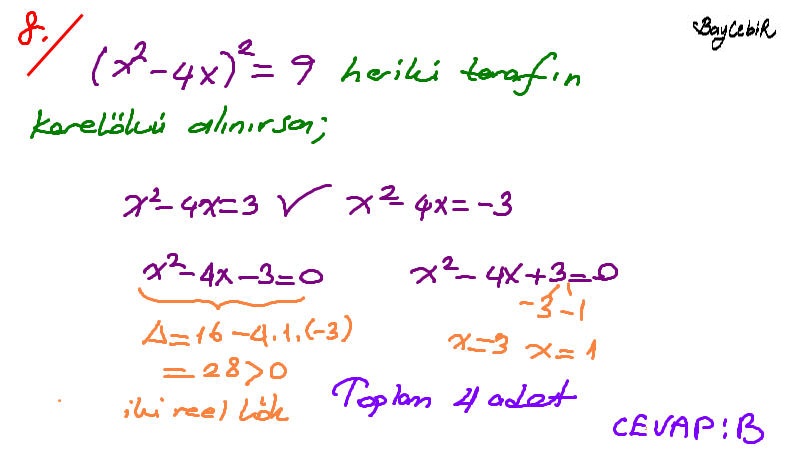 BaycebiR
8. (x²-4x)²=9 heriki tarafın
karekökü alınırsa;
x²-4x=3 ✓ x²-4x=-3
x²-4x-3=0 x²-4x+3=0
-3 -1
Δ=16-4.1.(-3) x=3 x=1
=28>0
iki reel kök Toplam 4 adet
CEVAP:B